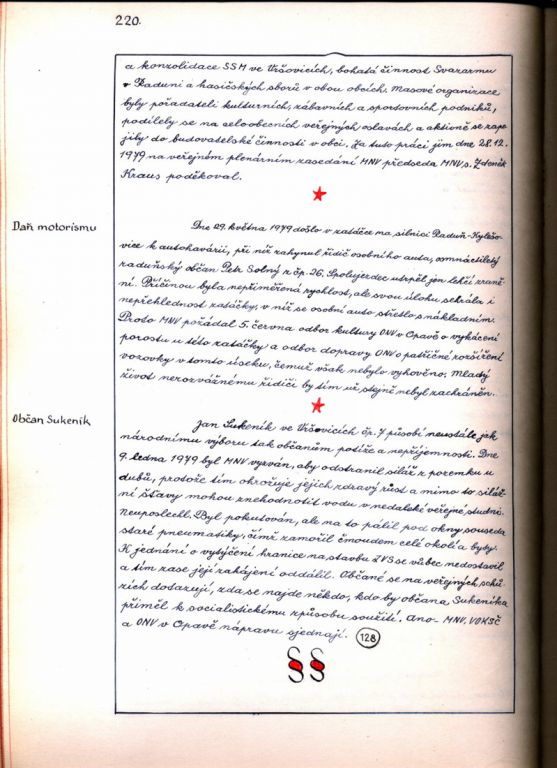 220.
a konzolidace SSM ve Vršovicích, bohatá činnost Svazarmu
v Raduni a hasičských sborů v obou obcích. Masové organizace
byly pořadateli kulturních, zábavních a sportovních podniků,
podílely se na celoobecních veřejných oslavách a aktivně se zapo-
jily do budovatelské činnosti v obci. Za tuto práci jim dne 28.12.
1979 na veřejném plenárním zasedání MNV předseda MNV, s. Zdeněk
Kraus poděkoval.
Daň motorismu
Dne 29. května 1979 došlo v zatáčce na silnici Raduň-Kylešo-
vice k autohavárii, při níž zahynul řidič osobního auta, osmnáctiletý
raduňský občan Petr Solný z čp. 26. Spolujezdec utrpěl jen lehčí zraně-
ní. Příčinou byla nepřiměřená rychlost, ale svou úlohu sehrála i
nepřehlednost zatáčky, v níž se osobní auto střetlo s nákladním.
Proto MNV požádal 5. června odbor kultury ONV v Opavě o vykácení
porostu u této zatáčky a odbor dopravy ONV o patřičné rozšíření
vozovky v tomto úseku, čemuž však nebylo vyhověno. Mladý
život nerozvážnému řidiči by tím už stejně nebyl zachráněn.
Občan Sukeník
Jan Sukeník ve Vršovicích čp. 7 působí neustále jak
národnímu výboru tak občanům potíže a nepříjemnosti. Dne
9. ledna 1979 byl MNV vyzván, aby odstranil siláž z pozemku u
dubů, protože tím ohrožuje jejich zdravý růst a mimo to siláž-
ní šťávy mohou znehodnotit vodu v nedaleké veřejné studni.
Neuposlechl. Byl pokutován, ale na to pálil pod okny souseda
staré pneumatiky, čímž zamořil čmoudem celé okolí a byty.
K jednání o vytýčení hranice na stavbu ZVS se vůbec nedostavil
a tím zase její zahájení oddálil. Občané se na veřejných schů-
zích dotazují, zda se najde někdo, kdo by občana Sukeníka
přiměl k socialistickému způsobu soužití. Ano - MNV, VOKSČ
a ONV v Opavě nápravu sjednají. 128
§§